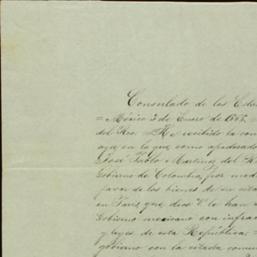 Consulado de los Esta
= México 3 de Enero de 1887.
del Rio. = He recibido la com
aya en la que como apoderado
José Pablo Martinez del R
Gobierno de Colombia, por med
favor de los bienes de su esta
en Paris, que dice le han s
Gobierno mexicano con infrac
y leyes, de esta República: =
gobierno con la citada comun